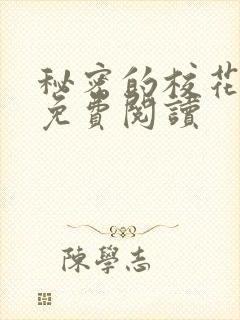 秘密的校花
免費閱讀
陳學志